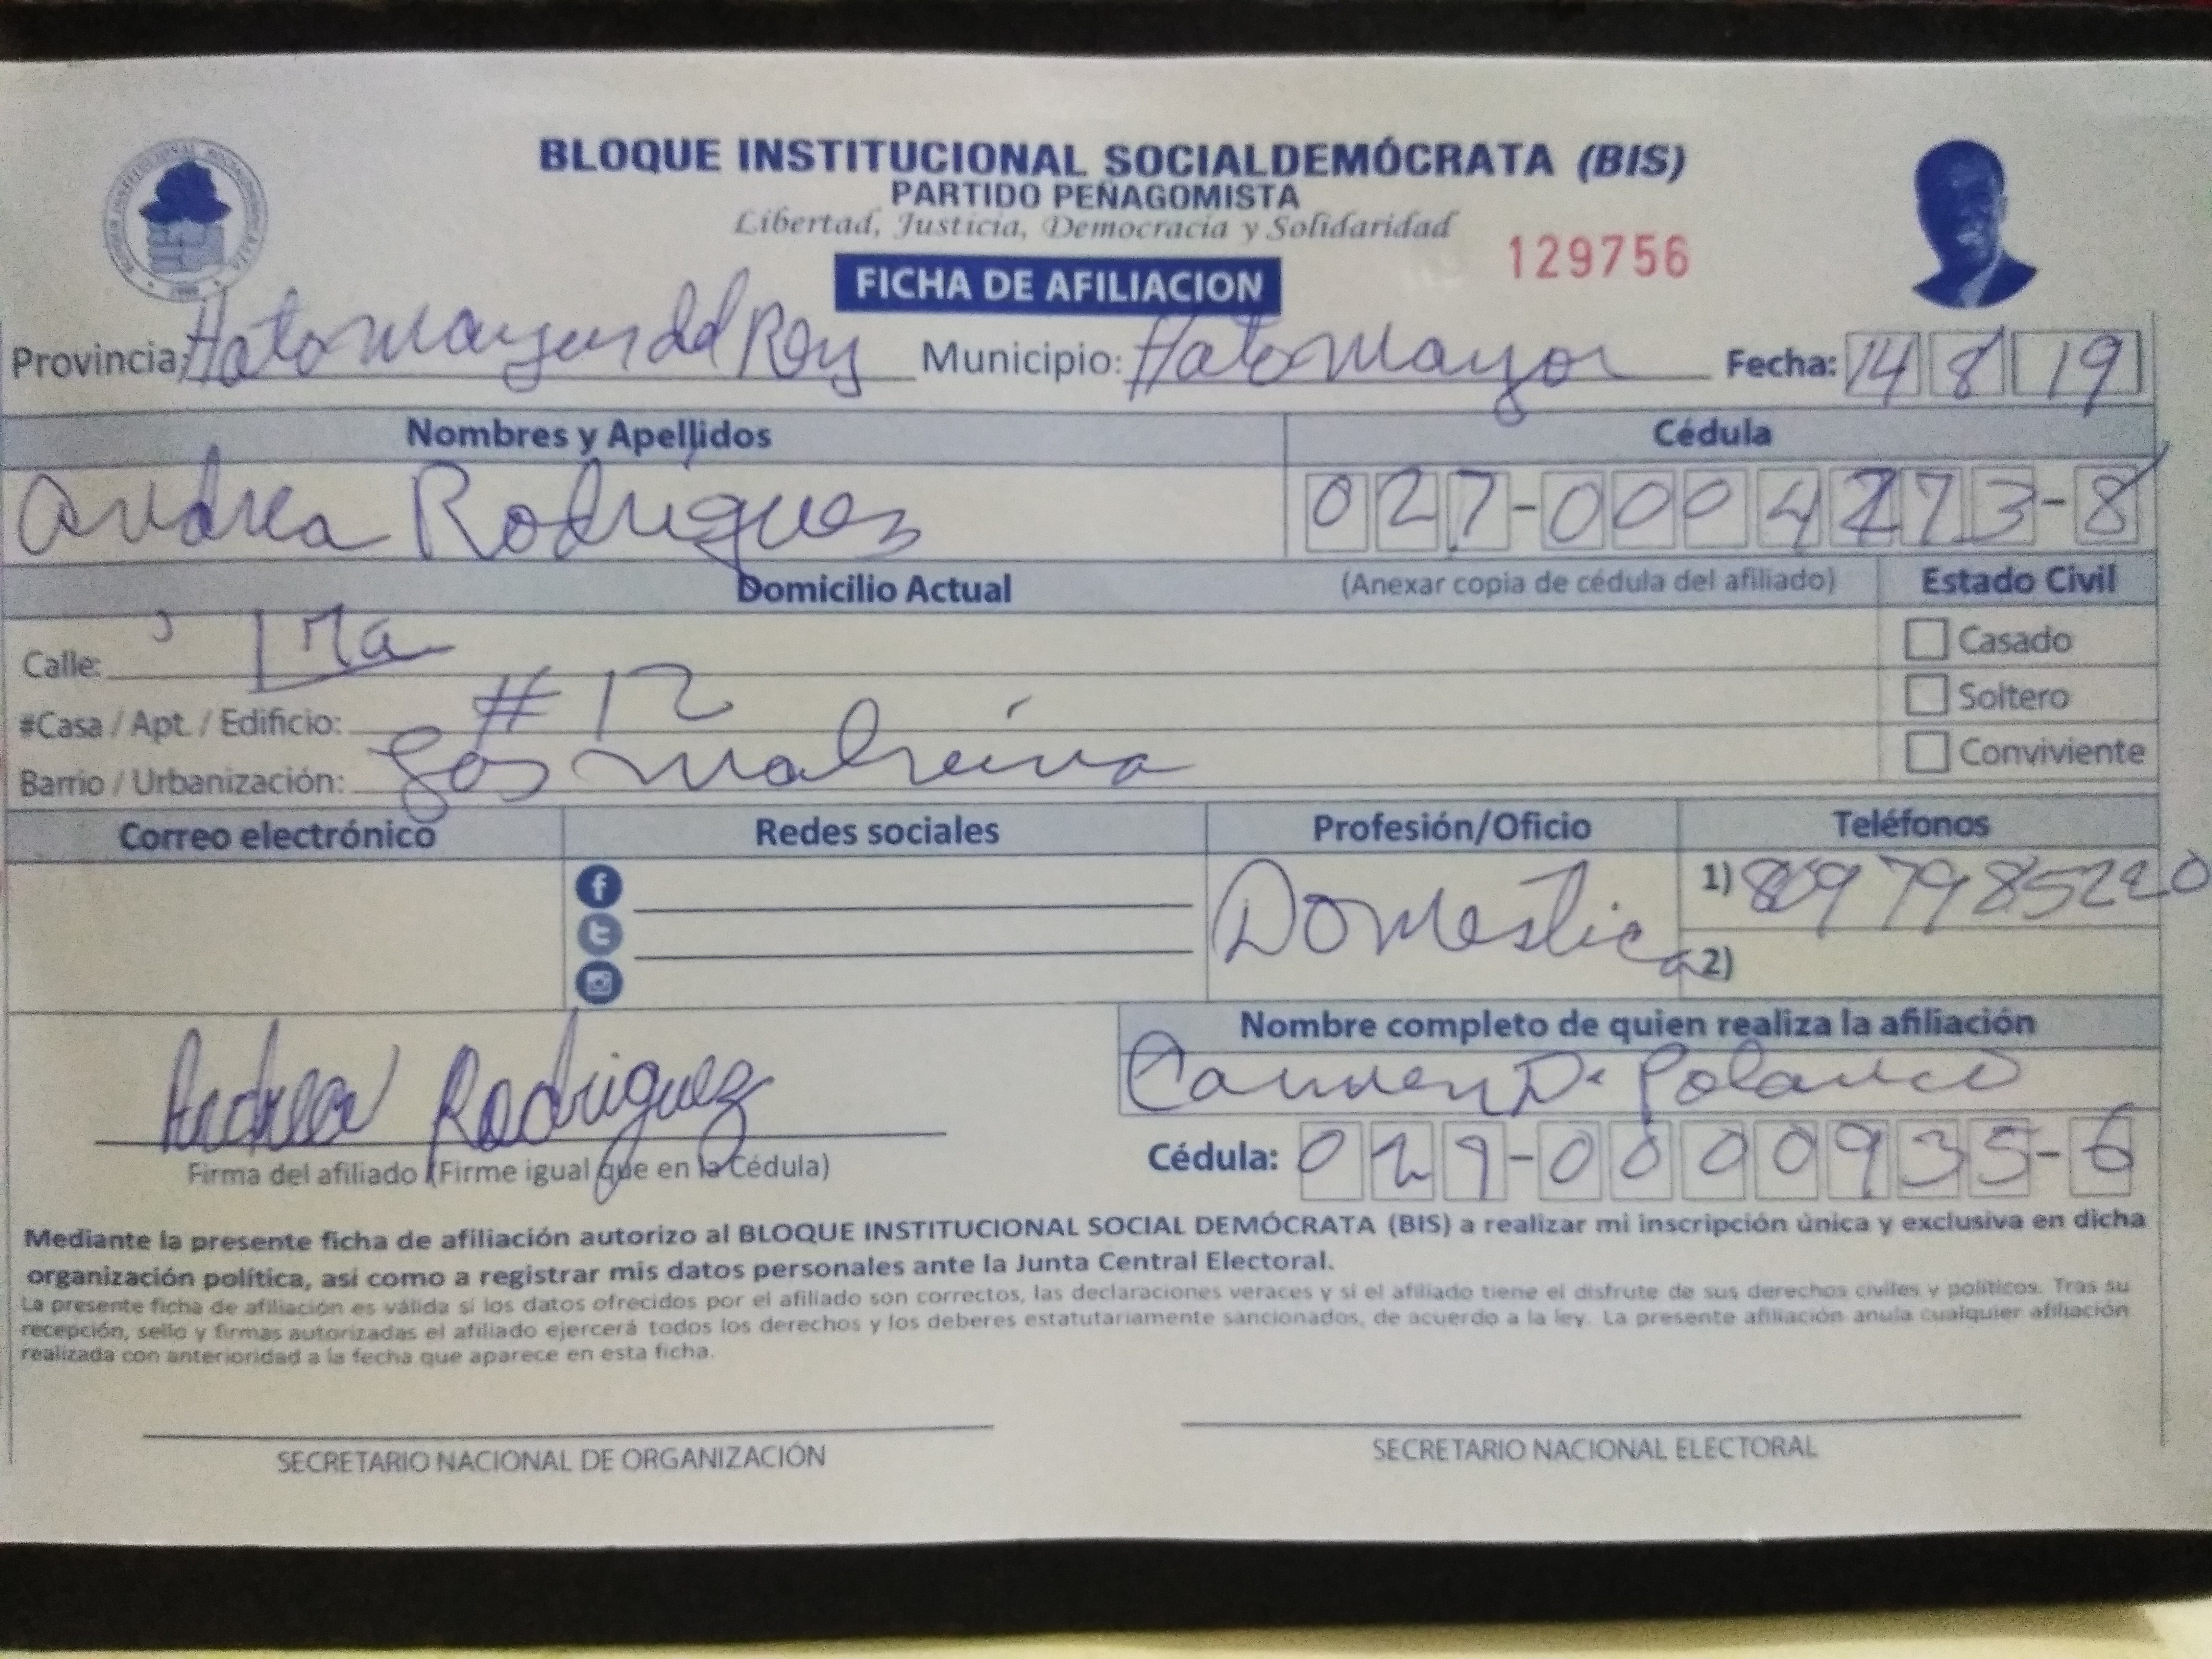 BLOQUE INSTITUCIONAL SOCIALDEMÓCRATA (BIS)
PARTIDO PEÑAGOMISTA
Libertad, Justicia, Democracia y Solidaridad
129756
FICHA DE AFILIACION
Provincia: Hato Mayor del Rey Municipio: Hato Mayor Fecha: 14 8 19
Nombres y Apellidos Cédula
Andrea Rodriguez 027-0004273-8
Domicilio Actual (Anexar copia de cédula del afiliado) Estado Civil
Calle: Casado
#Casa / Apt. / Edificio: #12 Soltero
Barrio / Urbanización: Conviviente
Correo electrónico Redes sociales Profesión/Oficio Teléfonos
Domestica 1) 8097985220
2)
Nombre completo de quien realiza la afiliación
Andrea Rodriguez Carmen D. Polanco
Firma del afiliado (Firme igual que en la Cédula) Cédula: 029-0000935-6
Mediante la presente ficha de afiliación autorizo al BLOQUE INSTITUCIONAL SOCIAL DEMÓCRATA (BIS) a realizar mi inscripción única y exclusiva en dicha
organización política, así como a registrar mis datos personales ante la Junta Central Electoral.
La presente ficha de afiliación es válida si los datos ofrecidos por el afiliado son correctos, las declaraciones veraces y si el afiliado tiene el disfrute de sus derechos civiles y políticos. Tras su
recepción, sello y firmas autorizadas el afiliado ejercerá todos los derechos y los deberes estatutariamente sancionados, de acuerdo a la ley. La presente afiliación anula cualquier afiliación
realizada con anterioridad a la fecha que aparece en esta ficha.
SECRETARIO NACIONAL DE ORGANIZACIÓN SECRETARIO NACIONAL ELECTORAL